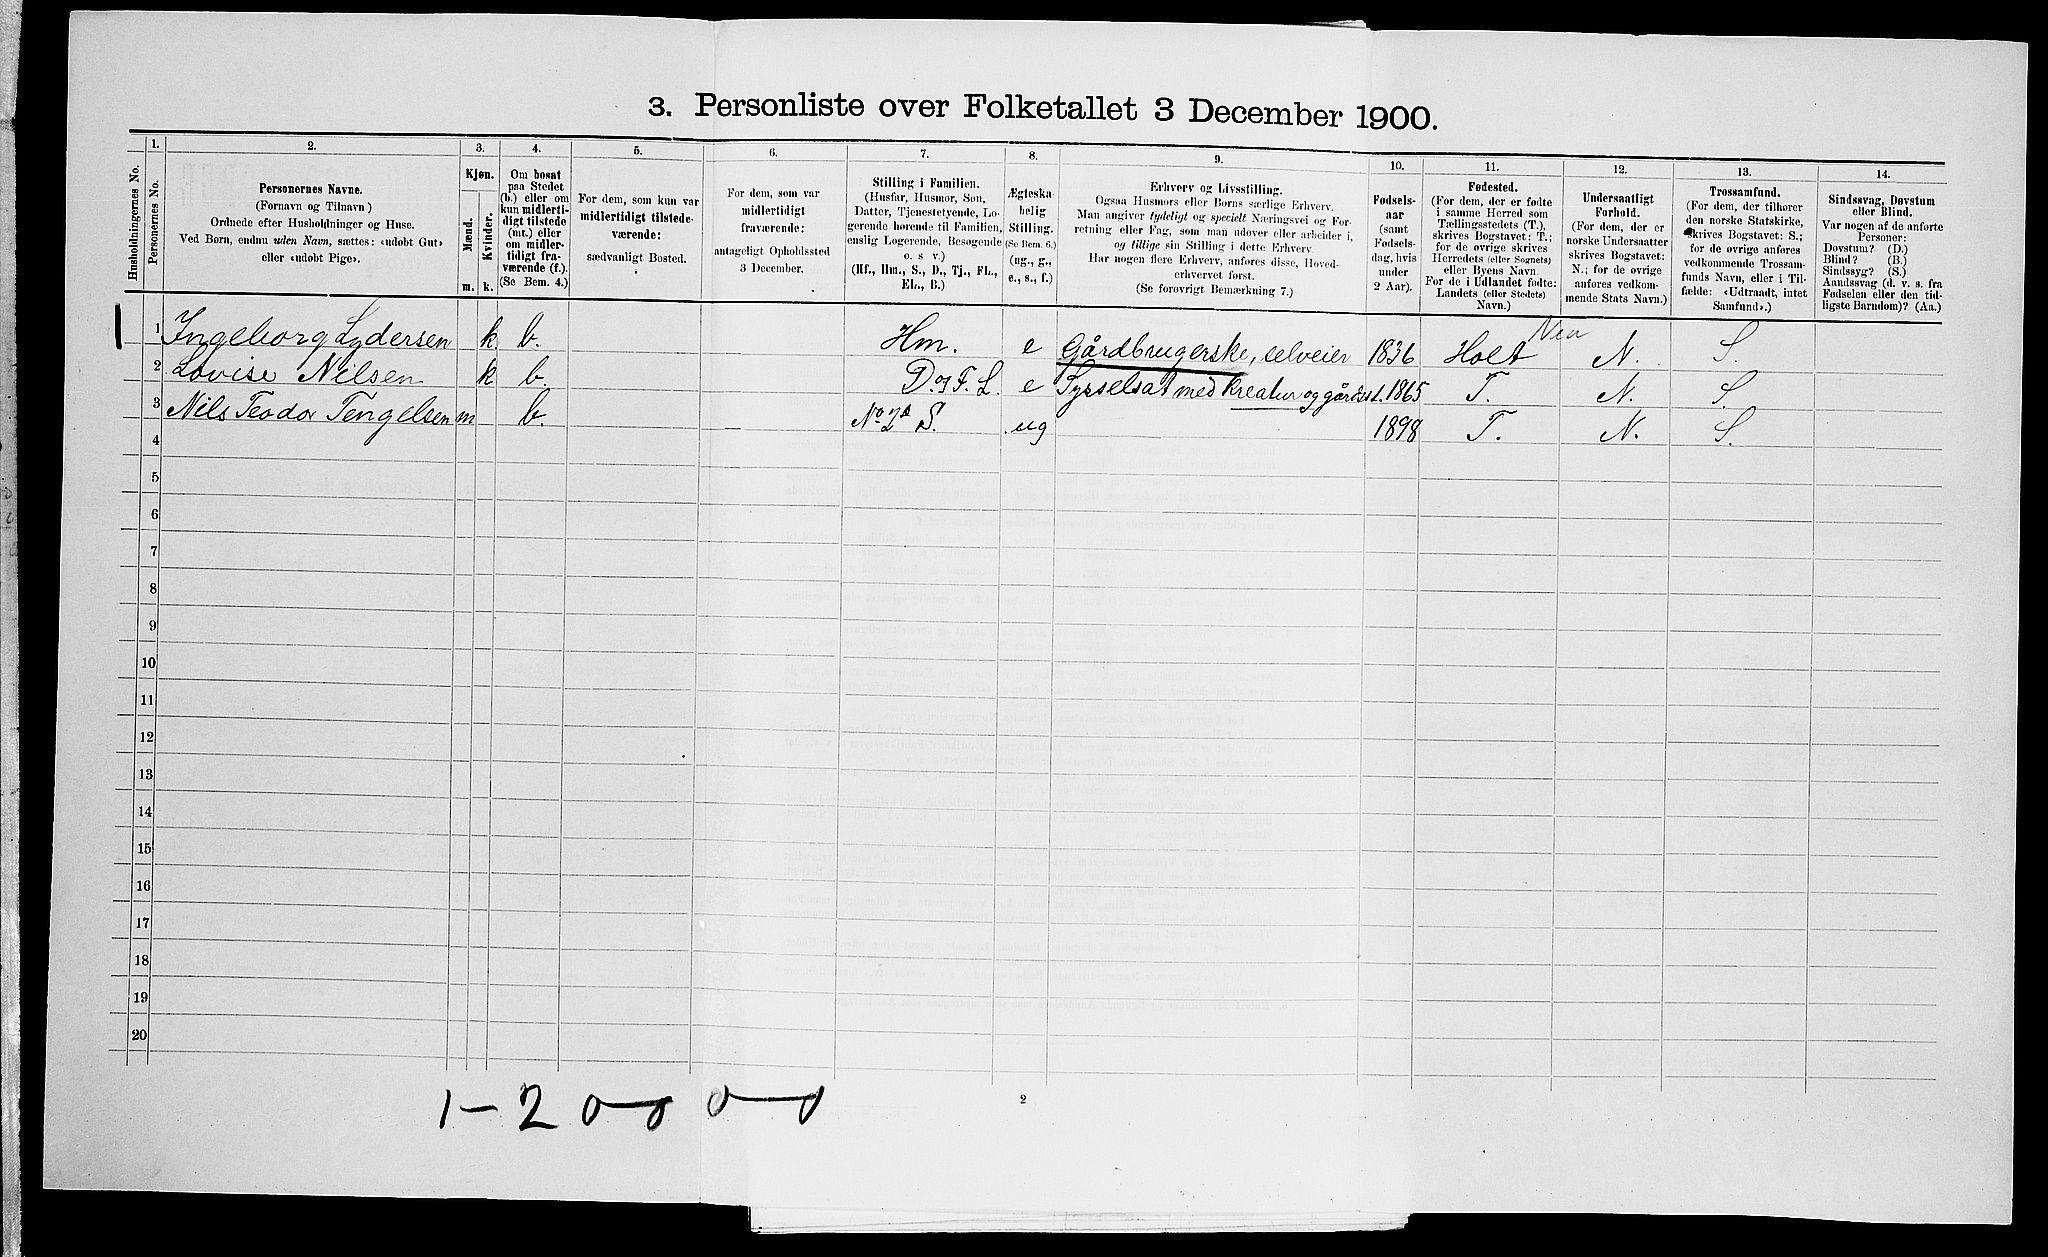 3. Personliste over Folketallet 3 December 1900.
Husholdningernes No.
1.
Personernes No.
2.
Personernes Navne.
(Fornavn og Tilnavn)
Ordnede efter Husholdninger og Huse.
Ved Børn, endnu uden Navn, sættes: «udøbt Gut»
eller «udøbt Pige».
3.
Kjøn.
Mænd.
Kvinder.
m. k.
4.
Om bosat
paa Stedet
(b.) eller om
kun midlerti-
digt tilstede
(mt.) eller
om midler-
tidigt fra-
værende (f.).
(Se Bem. 4.)
5.
For dem, som kun var
midlertidigt tilstede-
værende:
sædvanligt Bosted.
6.
For dem, som var
midlertidigt
fraværende:
antageligt Opholdssted
3 December.
7.
Stilling i Familien.
(Husfar, Husmor, Søn,
Datter, Tjenestetyende, Lo-
gerende hørende til Familien,
enslig Logerende, Besøgende
o. s v.)
(Hf., Hm., S., D., Tj., FL.,
EL., B.)
8.
Ægteska-
belig
Stilling.
(Se Bem. 6.)
(ug., g.,
e., s., f.)
9.
Erhverv og Livsstilling.
Ogsaa Husmors eller Børns særlige Erhverv.
Man angiver tydeligt og specielt Næringsvei og For-
retning eller Fag, som man udøver eller arbeider i,
og tillige sin Stilling i dette Erhverv.
Har nogen flere Erhverv, anføres disse, Hoved-
erhvervet først.
(Se forøvrigt Bemærkning 7.)
10.
Fødsels-
aar
(samt
Fødsels-
dag, hvis
under
2 Aar).
11.
Fødested.
(For dem, der er fødte
i samme Herred som
Tællingsstedets (T.),
skrives Bogstavet: T.;
for de øvrige skrives
Herredets (eller Sognets)
eller Byens Navn.
For de i Udlandet fødte:
Landets (eller Stedets)
Navn.)
12.
Undersaatligt
Forhold.
(For dem, der er
norske Undersaatter
skrives Bogstavet:
N.; for de øvrige
anføres vedkom-
mende Stats Navn.)
13.
Trossamfund.
(For dem, der tilhører
den norske Statskirke,
skrives Bogstavet: S.;
for de øvrige anføres
vedkommende Trossam-
funds Navn, eller i Til-
fælde: «Udtraadt, intet
Samfund».)
14.
Sindssvag, Døvstum
eller Blind.
Var nogen af de anførte
Personer:
Døvstum? (D.)
Blind? (B.)
Sindssyg? (S.)
Aandssvag (d. v. s. fra
Fødselen eller den tid-
ligste Barndom)? (Aa.)
1 Ingeborg Lydersen k. b. Hm. e Gårdbrugerske, selveier 1836 Holt N. S.
2 Lovise Nilsen k b. D. og F. L. e Sysselsat med kreatur og gårdsst. 1865 T. N. S.
3 Nils Teodor Tengelsen m b. No 2s S. ug 1898 T. N. S.
4
5
6
7
8
9
10
11
12
13
14
15
16
17
18
19
20
1 - 2 0 - 0 0 - 0
2